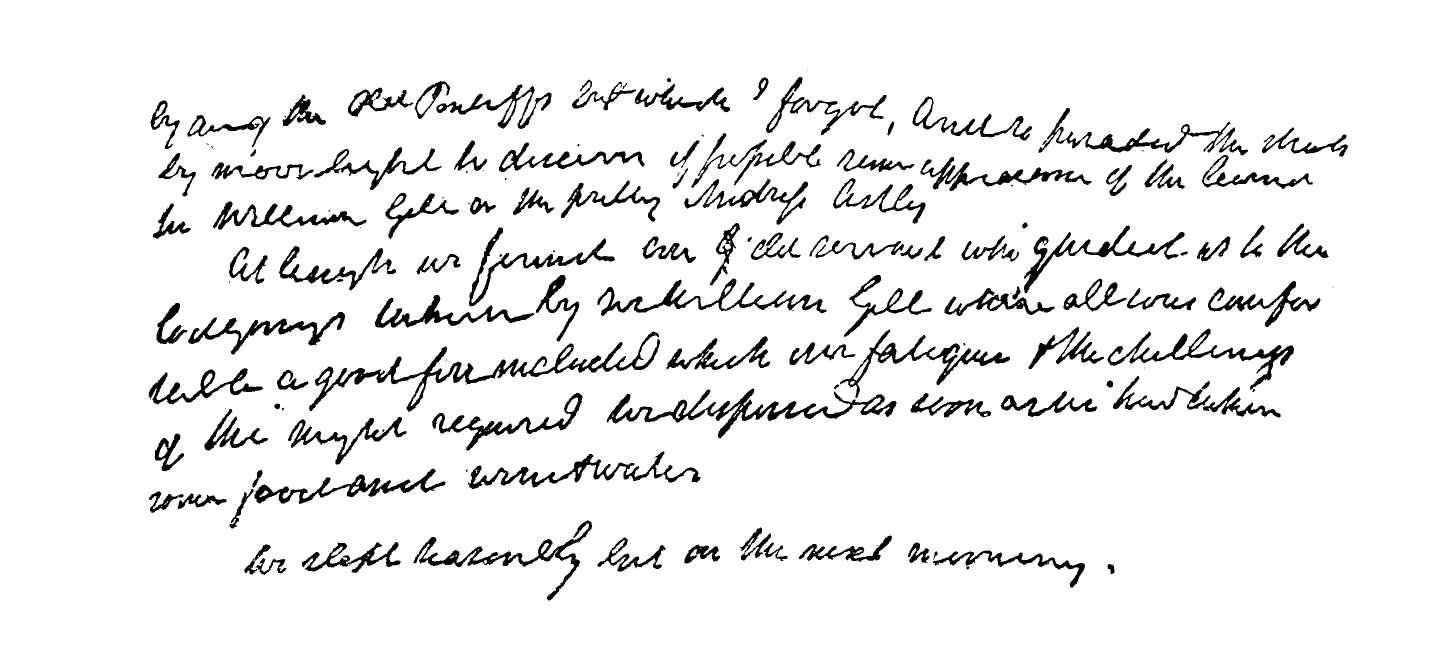 by any of the Old Pontiffs but which I forget, And so paraded the streets
by moonlight to discern if possible some appearance of the learned
Sir William Gell or the pretty Andress Astley
At length we found an old servant who guided us to the
lodgings taken by Sir William Gell where all was comfor
table a good fire included which our fatigue & the chillings
of the night required we dispersed as soon as we had taken
some food and wine & water
We slept reasonably but on the next morning.